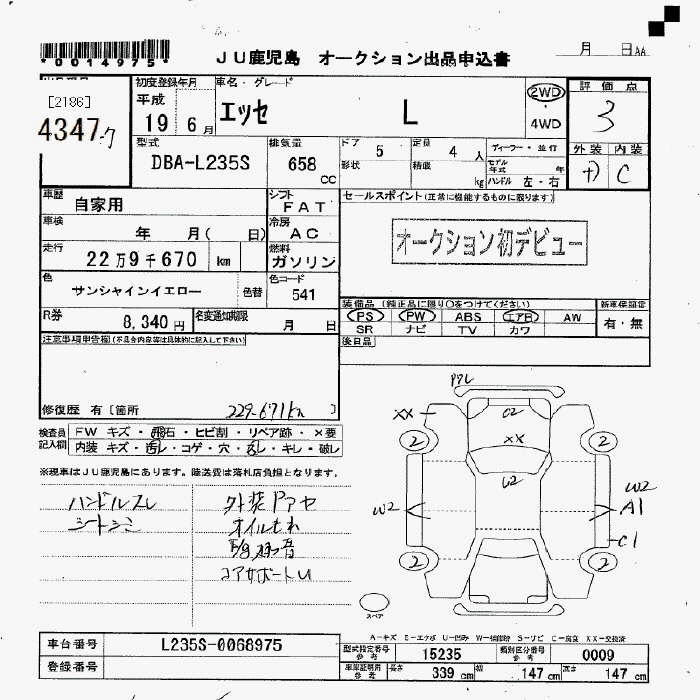 *0014975*
JU鹿児島 オークション出品申込書
月 日AA
[2186]
4347
初度登録年月
平成
19 6月
車名・グレード
エッセ L
2WD
4WD
評価点
3
型式
DBA-L235S
排気量
658 CC
ドア 5
形状
定員 4 人
積載 kg
ディーラー・並行
モデル年式 年
ハンドル 左・右
外装 内装
C
車歴
自家用
シフト
FAT
セールスポイント(正常に機能するものに限ります)
オークション初デビュー
車検
年 月( 日)
冷房
AC
走行
22万9千670 km
燃料
ガソリン
色
サンシャインイエロー 色替
色コード
541
装備品(純正品に限り○をつけてください)
新車保証書
PS PW ABS エアB AW
有・無
SR ナビ TV カワ
後日品
R券
8,340円
名変通知期限
月 日
注意事項申告欄(不具合内容等は具体的に記入して下さい)
修復歴 有〔箇所 229.671km 〕
検査員記入欄
FW キズ・飛石・ヒビ割・リペア跡・×要
内装 キズ・汚レ・コゲ・穴・スレ・キレ・破レ
※現車はJU鹿児島にあります。陸送費は落札店負担となります。
ハンドルスレ
シートシミ
外装ドアセ
オイルモレ
コアサポートU
アレ
XX
C2
XX
W2
2
2
2
2
W2
W2
A1
C1
スペア
A-キズ E-エクボ U-凹み W-補修跡 S-サビ C-腐食 XX-交換済
車台番号
L235S-0068975
登録番号
型式指定番号 参考
15235
類別区分番号 参考
0009
車庫証明用 参考
長さ 339 cm
幅 147 cm
高さ 147 cm